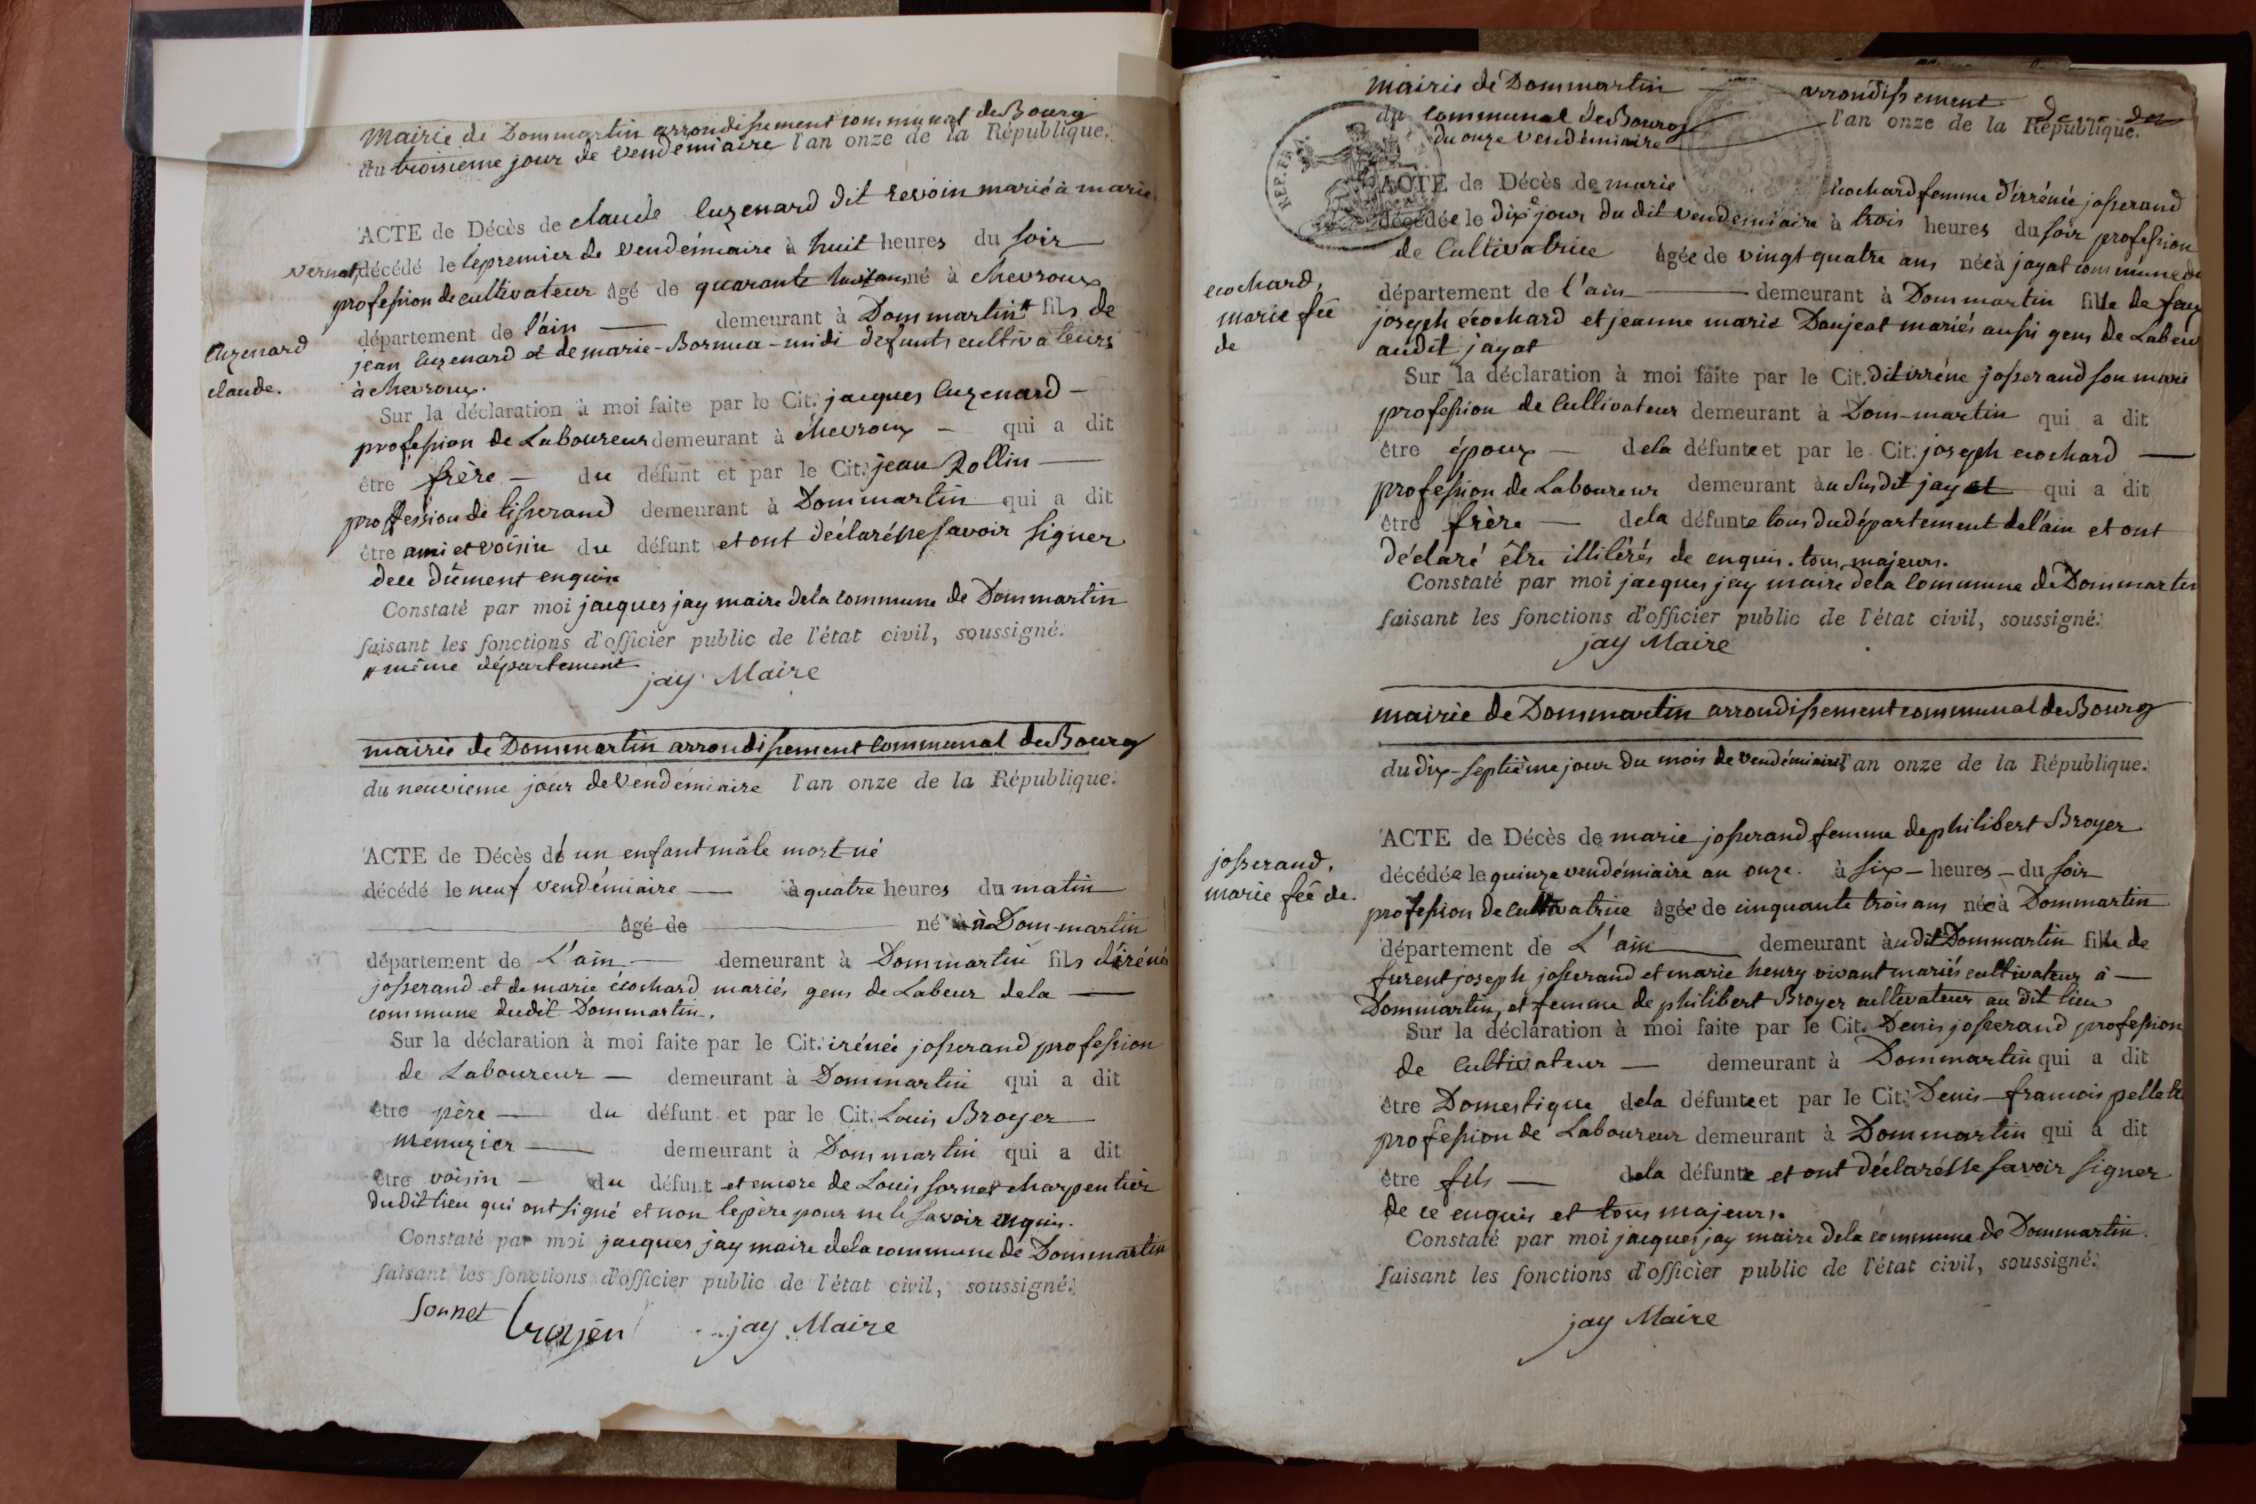 mairie de Dommartin arrondissement communal de Bourg
du troisieme jour de vendemiaire l'an onze de la République.
ACTE de Décès de claude luzenard dit revoin marié à marie
vernat, décédé le le premier de vendémiaire à huit heures du soir
profession de cultivateur âgé de quarante huit ans né à chevroux
département de l'ain demeurant à Dommartin # fils de
luzenard
claude.
jean luzenard et de marie - - midi defunts cultivateurs
à chevroux.
Sur la déclaration à moi faite par le Cit. jacques luzenard -
profession de Laboureur demeurant à chevroux - qui a dit
être frère - du défunt et par le Cit. jean Rollin
proffession de tisserand demeurant à Dommartin qui a dit
être ami et voisin du défunt et ont déclaré ne savoir signer
de ce dûment enquis
Constaté par moi jacques jay maire de la commune de Dommartin
faisant les fonctions d'officier public de l'état civil, soussigné.
# même département
jay Maire
mairie de Dommartin arrondissement communal de Bourg
du neuvieme jour de vendémiaire l'an onze de la République.
ACTE de Décès de un enfant mâle mort né
décédé le neuf vendémiaire à quatre heures du matin
âgé de né à Dom-martin
département de L'ain demeurant à Dommartin fils d'iréné
josserand et de marie écochard mariés gens de Labeur de la
commune dudit Dommartin.
Sur la déclaration à moi faite par le Cit. irénée josserand profession
de Laboureur - demeurant à Dommartin qui a dit
être père du défunt et par le Cit. Louis Broyer
menuzier demeurant à Dommartin qui a dit
être voisin - du défunt et encore de Louis sornet charpentier
dudit lieu qui ont signé et non le père pour ne le savoir enquis.
Constaté par moi jacques jay maire de la commune de Dommartin
faisant les fonctions d'officier public de l'état civil, soussigné.
sonnet jay Maire
mairie de Dommartin arrondissement
du communal de Bourg l'an onze de la République.
du onze vendémiaire
REP. FRA.
ACTE de Décès de marie écochard femme d'irrénée josserand
décédée le dixe jour du dit vendemiaire à trois heures du soir profession
de Cultivatrice âgée de vingt quatre ans née à jayat commune de
ecochard,
marie fee
de
département de l'ain demeurant à Dommartin fille de feux
joseph écochard et jeanne marie Donjeat mariés aussi gens de Labeur
audit jayat
Sur la déclaration à moi faite par le Cit. dit irréne josserand son mari
profession de Cultivateur demeurant à Dom-martin qui a dit
être époux de la défunte et par le Cit. joseph ecochard
profession de Laboureur demeurant au susdit jayat qui a dit
être frère de la défunte tous du département de l'ain et ont
déclaré être illitérés de enquis. tous majeurs.
Constaté par moi jacques jay maire de la Commune de Dommartin
faisant les fonctions d'officier public de l'état civil, soussigné.
jay Maire
mairie de Dommartin arrondissement communal de Bourg
du dix-septième jour du mois de vendémiaire l'an onze de la République.
ACTE de Décès de marie josserand femme de philibert Broyer
josserand,
marie fee de.
décédée le quinze vendémiaire an onze. à six - heures - du soir
profession de cultivatrice âgée de cinquante trois ans née à Dommartin
département de L'ain demeurant audit Dommartin fille de
furent joseph josserand et marie henry vivant mariés cultivateur à
Dommartin, et femme de philibert Broyer cultivateur au dit lieu
Sur la déclaration à moi faite par le Cit. Denis josserand profession
de Cultivateur demeurant à Dommartin qui a dit
être Domestique de la défunte et par le Cit. Denis-francois
profession de Laboureur demeurant à Dommartin qui a dit
être fils de la défunte et ont déclaré ne savoir signer
de ce enquis et tous majeurs.
Constaté par moi jacques jay maire de la commune de Dommartin.
faisant les fonctions d'officier public de l'état civil, soussigné.
jay Maire